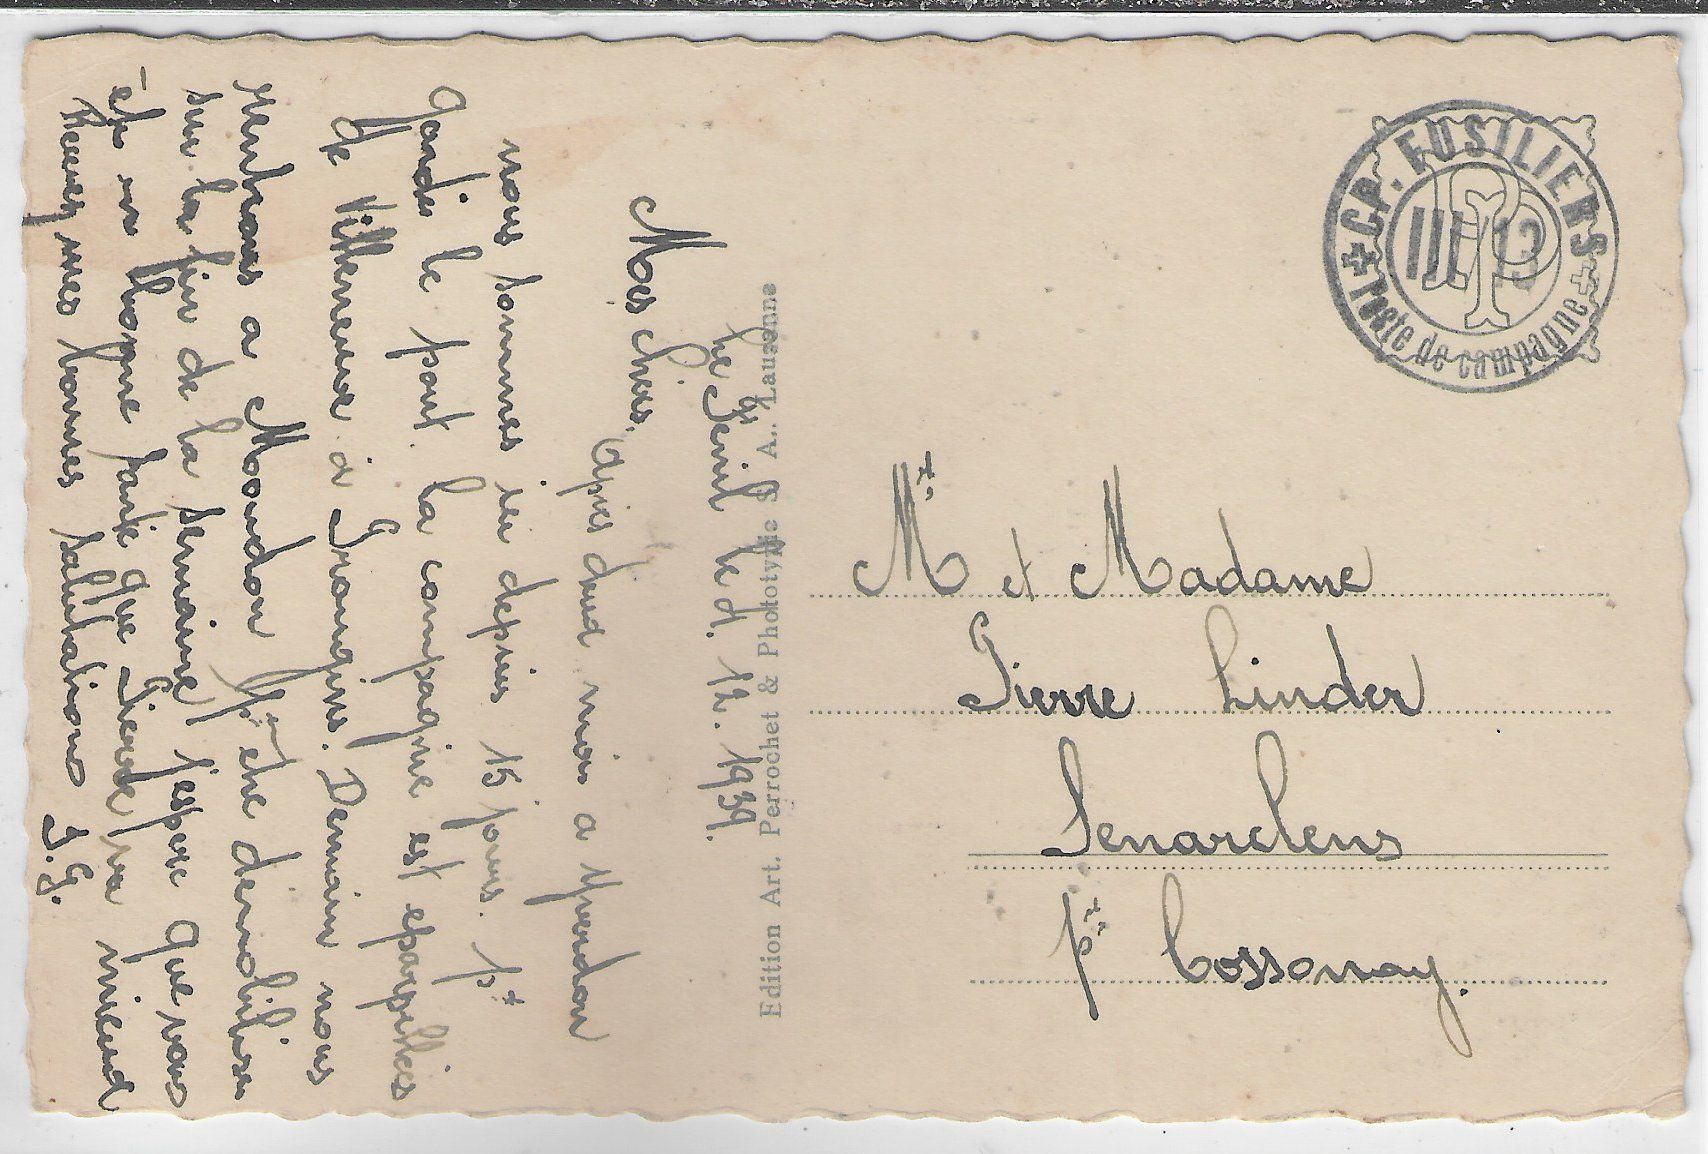 Le Senil le d. 12. 1939.
Mes chers,
Après deux mois a Moudon
nous sommes ici depuis 15 jours. Pr
garder le pont. la compagnie est eparpillées
de Villeneuve à Gran . Demain nous
rentrons a Moudon pr être demobiliser
sur la fin de la semaine j'espere que vous
et en bonne santé que Pierre va mieux
Recevez mes bonnes salutations J.G.
Edition Art. Perrochet & Phototypie S. A., Lausanne
CP. FUSILIERS
III 13
Poste de campagne
P
Mr et Madame
Pierre Linder
Senarclens
pr Cossonay.